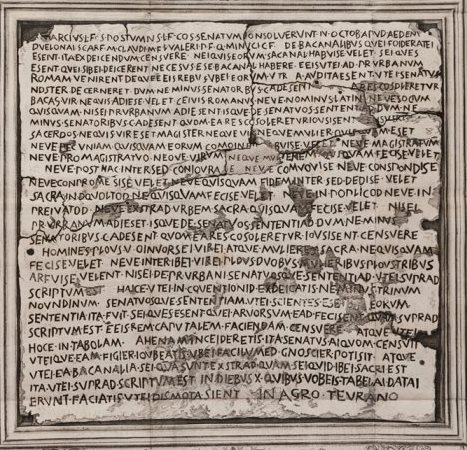 MARCIVS L F S POSTVMIVS L F COS SENATVM CONSOLVERVNT N OCTOB APVD AEDEM
DVELONAI SC ARF M CLAVDI M F L VALERI P F Q MINVCI C F DE BACANALIBVS QVEI FOIDERATEI
ESENT ITA EXDEICENDVM CENSVERE NEIQVIS EORVM SACANAL HABVISE VELET SEI QVES
ESENT QVEI SIBEI DEICERENT NECESVS ESE BACANAL HABERE EEIS VTEI AD PR VRBANVM
ROMAM VENIRENT DEQVE EEIS REBVS VBEI EORVM VTR A AVDITA ESENT VTEI SENATVS
NOSTER DECERNERET DVM NE MINVS SENATORBVS C ADESENT A RES COSOLERETVR
BACAS VIR NEQVIS ADIESE VELET CEIVIS ROMANVS NEVE NOMINVS LATINI NEVE SOCIVM
QVISQVAM NISEI PR VRBANVM ADIESENT ISQVE DE SENATVOS SENTENTIAD DVM NE
MINVS SENATORIBVS C ADESENT QVOM EA RES COSOLERETVR IOVSISENT CENSVERE
SACERDOS NEQVIS VIR ESET MAGISTER NEQVE VIR NEQVE MVLIER QVISQVAM ESET
NEVE PECVNIAM QVISQVAM EORVM COMOINEM HABVISE VELET NEVE MAGISTRATVM
NEVE PRO MAGISTRATVO NEVE VIRVM NEQVE MVLIEREM QVISQVAM FECISE VELET
NEVE POST HAC INTER SED CONIOVRASE NEVE COMVOVISE NEVE CONSPONDISE
NEVE CONPROMESISE VELET NEVE QVISQVAM FIDEM INTER SED DEDISE VELET
SACRA IN OQVOLTOD NE QVISQVAM FECISE VELET NEVE IN POPLICOD NEVE IN
PREIVATOD NEVE EXSTRAD VRBEM SACRA QVISQVAM FECISE VELET NISEI
PR VRBANVM ADIESET ISQVE DE SENATVOS SENTENTIAD DVM NE MINVS
SENATORIBVS C ADESENT QVOM EA RES COSOLERETVR IOVSISENT CENSVERE
HOMINES PLOVS V OINVORSEI VIREI ATQVE MVLIERES SACRA NE QVISQVAM
FECISE VELET NEVE INTER IBEI VIREI PLOVS DVOBVS MVLIERIBVS PLOVS TRIBVS
ARFVISE VELENT NISEI DE PR VRBANI SENATVOSQVE SENTENTIAD VTEI SVPRAD
SCRIPTVM EST HAICE VTEI IN COVENTIONID EXDEICATIS NE MINVS TRINVM
NOVNDINVM SENATVOSQVE SENTENTIAM VTEI SCIENTES ESETIS EORVM
SENTENTIA ITA FVIT SEI QVES ESENT QVEI ARVORSVM EAD FECISENT QVAM SVPRAD
SCRIPTVM EST EEIS REM CAPVTALEM FACIENDAM CENSVERE ATQVE VTEI
HOCE IN TABOLAM AHENAM INCEIDERETIS ITA SENATVS AIQVOM CENSVIT
VTEIQVE EAM FIGIER IOVBEATIS VBEI FACILVMED GNOSCIER POTISIT ATQVE
VTEI EA BACANALIA SEI QVA SVNT EXSTRAD QVAM SEI QVID IBEI SACRI EST
ITA VTEI SVPRAD SCRIPTVM EST IN DIEBVS X QVIBVS VOBEIS TABELAI DATAI
ERVNT FACIATIS VTEI DISMOTA SIENT IN AGRO TEVRANO